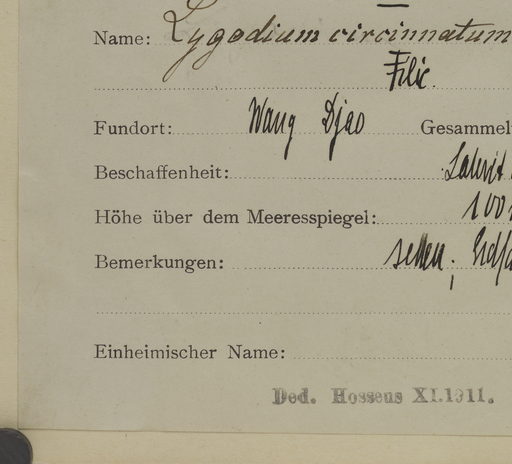 Name: Lygodium circinnatum
Filic.
Fundort: Wang Djao Gesammel
Beschaffenheit: Laterit
Höhe über dem Meeresspiegel: 100
Bemerkungen: selten;
Einheimischer Name:
Ded. Hosseus XI.1911.